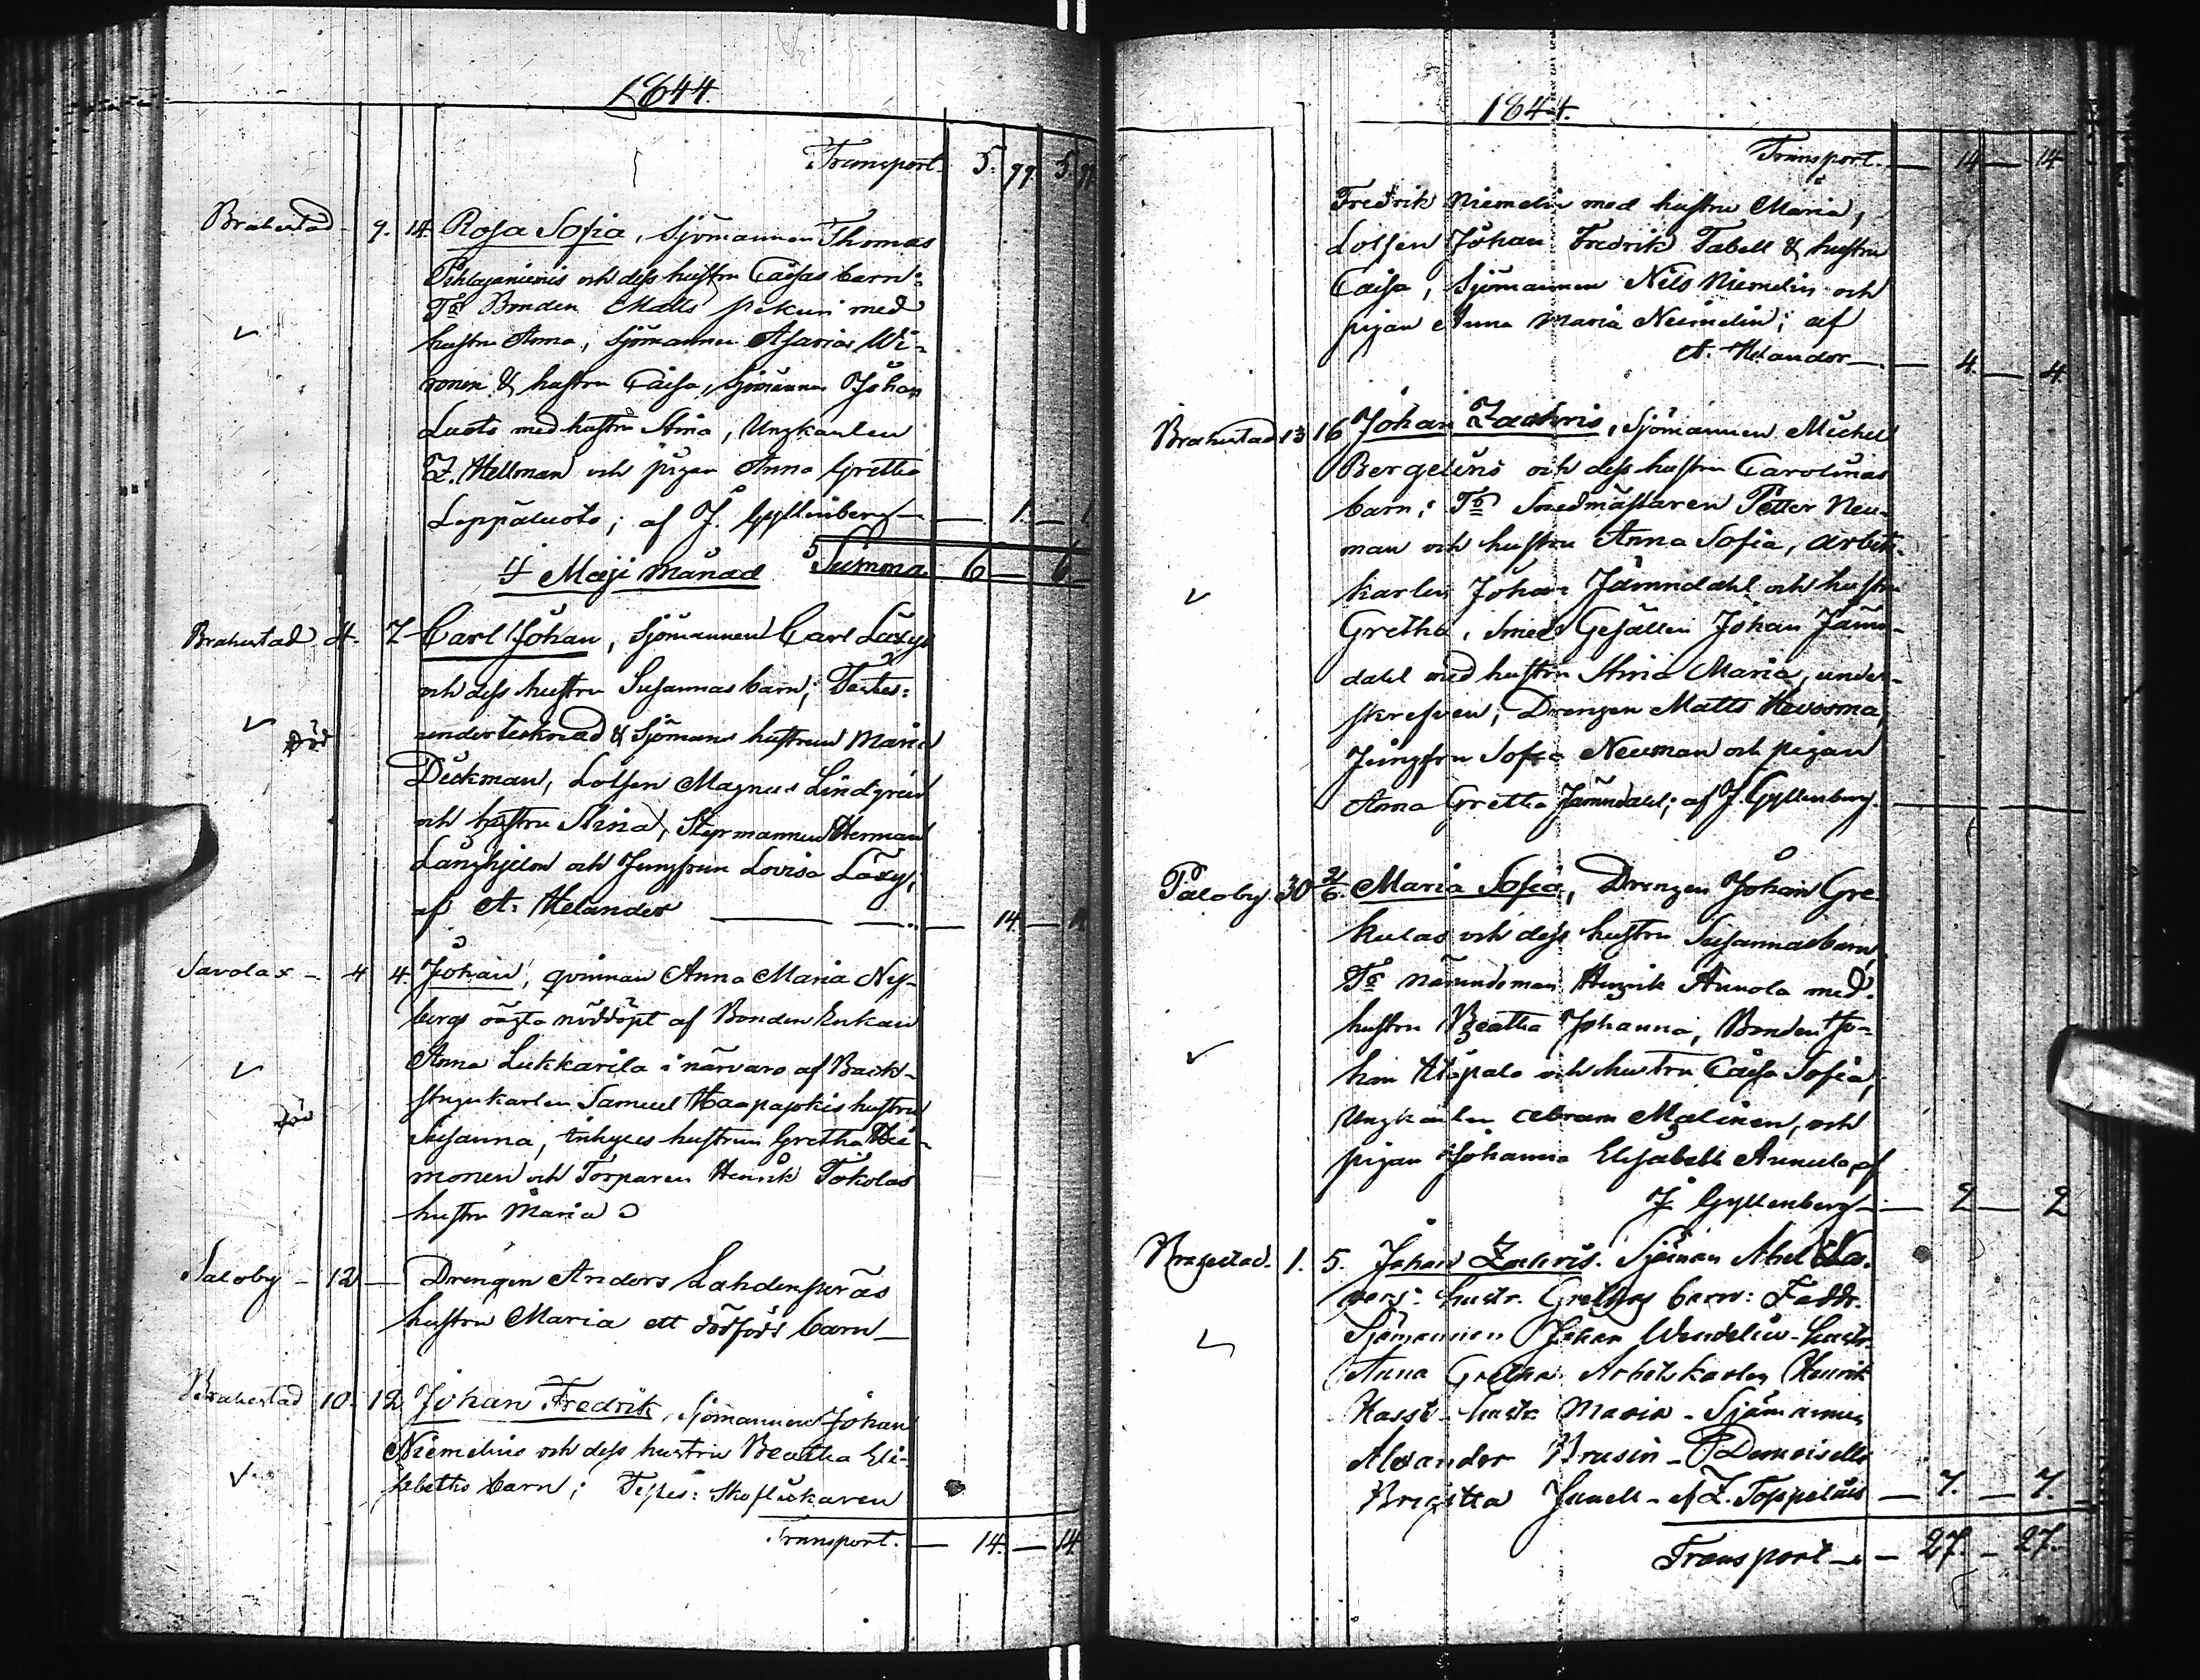 1844.
Transport. 5. 99. 5.
Brahestad 9. 14. Rosa Sofia, Sjömannen Thomas
och dess hustru Caisas barn:
Bonden Matts Pekuri med
hustru Anna, Sjömannen Asarias Wi-
ronen & hustru Caisa, Sjömannen Johan
Luoto med hustru Stina, Ungkarlen
Z. Hellman och pigan Anna Gretha
Leppäluoto; af J. Gyllenberg — 1. — 1
Maji månad Summa 6 — 6
Brahestad 4. 7 Carl Johan, Sjömannen Carl Laxys
och dess hustru Susannas barn; Testes:
undertecknad & Sjömans hustrun Maria
Död
Dickman, Lotsen Magnus Lindgren
och hustru Stina, Styrmannen Herman
Långhjelm och Jungfrun Lovisa Laxy;
af A. Helander — 14 —
Savolax — 4 4. Johan, qvinnan Anna Maria Ny-
bergs oägta nöddöpt af Bonden Enkan
Anna Lukkarila i närvaro af Back-
stugukarlen Samuel Haapajokis hustru
död
Susanna, inhyses hustrun Gretha Hei-
monen och Torparen Henrik Tokolas
hustru Maria
Saloby — 12 — Drengen Anders Lahdenperäs
hustru Maria ett dödfödt barn —
Brahestad 10. 12 Johan Fredrik, Sjömannen Johan
Niemelins och dess hustru Beatha Eli-
sabeths barn; Testes: Skoflickaren
Transport. — 14. — 14
1844.
Transport. — 14 — 14
Fredrik Niemelin med hustru Maria,
Lotsen Johan Fredrik Tabell & hustru
Caisa, Sjömannen Nils Niemelin och
pigan Anna Maria Niemelin; af
A. Helander — 4. — 4.
Brahestad 13 16 Johan Zachris, Sjömannen Michel
Bergelins och dess hustru Carolinas
barn; Smedmästaren Petter Neu-
man och hustru Anna Sofia, arbets-
karlen Johan Jämndahl och hustru
Gretha, Smeds Gesällen Johan Jämn-
dahl med hustru Stina Maria, under-
skrefven; Drengen Matts
Jungfru Sofia Neuman och pigan
Anna Gretha Jämndahl; af J. Gyllenberg. —
Paloby 30 2/6. Maria Sofia, Drengen Johan Gre-
kulas och dess hustru Susannas barn,
Nämndeman Henrik Annola med
hustru Beatha Johanna, Bonden Jo-
han och hustru Caisa Sofia,
Ungkarlen Abram Malinen, och
pigan Johanna Elisabeth Annola, af
J. Gyllenberg — 2 — 2
Brahestad. 1. 5. Johan Zachris. Sjöman Abel
hustr. Grethas barn: Faddr.
Sjömannen Johan Wendelin - hustr.
Anna Gretha. Arbetskarlen Henrik
Hassi - hustr. Maria - Sjömannen
Alexander Brusin - Demoiselle
Brigitta Junell - af Z. Toppelius — 7. — 7.
Transport — 27. — 27.